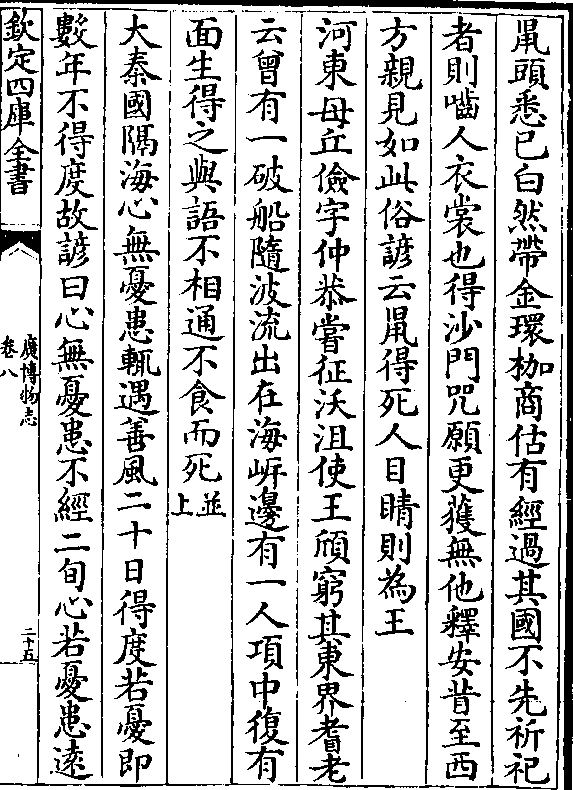 鼠頭悉已白然帶金環枷商估有經過其國不先祈祀
者則嚙人衣裳也得沙門咒願更獲無他釋安昔至西
方親見如此俗諺云鼠得死人目睛則為王
河東母丘儉字仲恭嘗征沃沮使王頎窮其東界耆老
云曾有一破船隨波流出在海岸邊有一人項中復有
面生得之與語不相通不食而死並上
大秦國隔海心無憂患輒遇善風二十日得度若憂即
數年不得度故諺曰心無憂患不經二旬心若憂患遠
欽定四庫全書
廣博物志
卷八
二十五